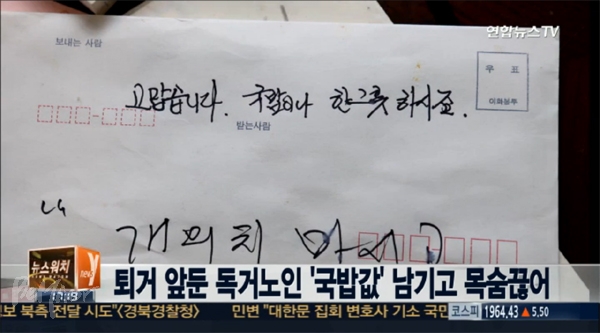 연합뉴스TV
보내는 사람
우 표
고맙습니다. 국밥이나 한그릇 하시죠.
이화봉투
받는사람
개의치 마시고
뉴스워치
news Y
퇴거 앞둔 독거노인 '국밥값' 남기고 목숨끊어
보 북측 전달 시도"<경북경찰청> 민변 "대한문 집회 변호사 기소 국민 코스피 1964.43 ▲ 5.50